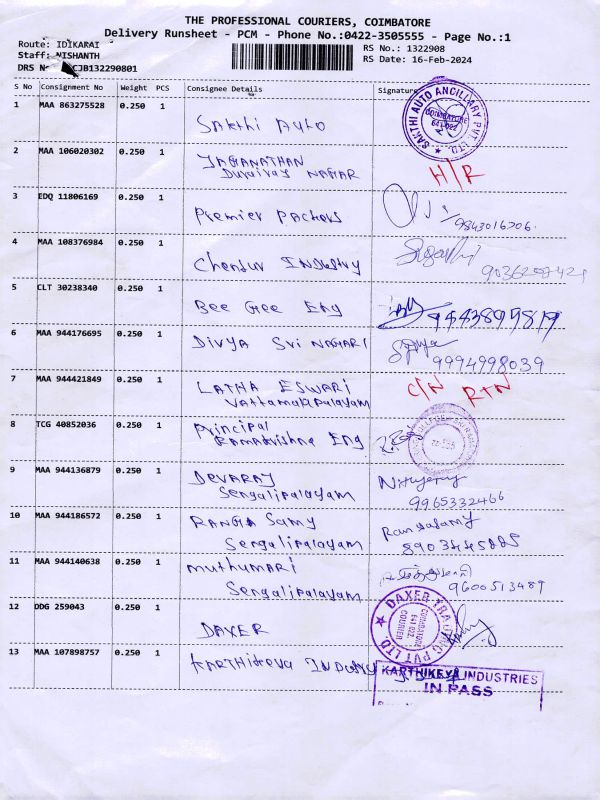 THE PROFESSIONAL COURIERS, COIMBATORE
Delivery Runsheet - PCM - Phone No.:0422-3505555 - Page No.:1
Route: IDIKARAI
RS No.: 1322908
Staff: NISHANTH
RS Date: 16-Feb-2024
DRS N CJB132290801
S No Consignment No Weight PCS Consignee Details Signature
1 MAA 863275528 0.250 1 Sakthi Auto
SAKTHI AUTO ANCILLARY PVT. LTD. COIMBATORE 641 022
2 MAA 106020302 0.250 1 JAGANATHAN
Durairaj NAGAR H/R
3 EDQ 11806169 0.250 1 Premier Packers 9843016206
4 MAA 108376984 0.250 1 Chendur Industry
5 CLT 30238340 0.250 1 Bee Gee Eng
6 MAA 944176695 0.250 1 DIVYA Sri NAGARI 9994998039
7 MAA 944421849 0.250 1 LATHA ESWARI C/N RTN
8 TCG 40852036 0.250 1 Principal
Ramakrishna Eng
9 MAA 944136879 0.250 1 DEVARAJ
Sengalipalayam 9965332466
10 MAA 944186572 0.250 1 RANGA Samy
Sengalipalayam
11 MAA 944140638 0.250 1 muthumari
Sengalipalayam 9600513489
12 DDG 259043 0.250 1 DAXER
DAXER TRADING PVT LTD. COIMBATORE 641 022. COURIER
13 MAA 107898757 0.250 1
KARTHIKEYA INDUSTRIES
IN PASS